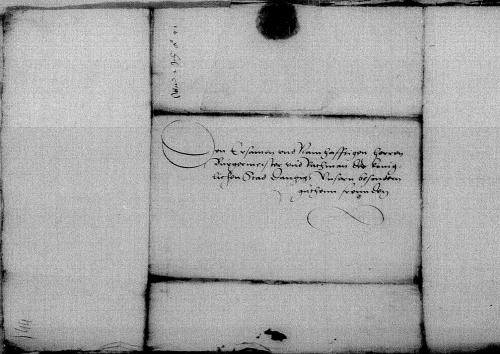 Den Ersamen vnd Namhafftigen Herren
Burgermeister vnd Rathman der konig
lichen Stad Dantzigk Vnsern besondern
gutthenn freunden